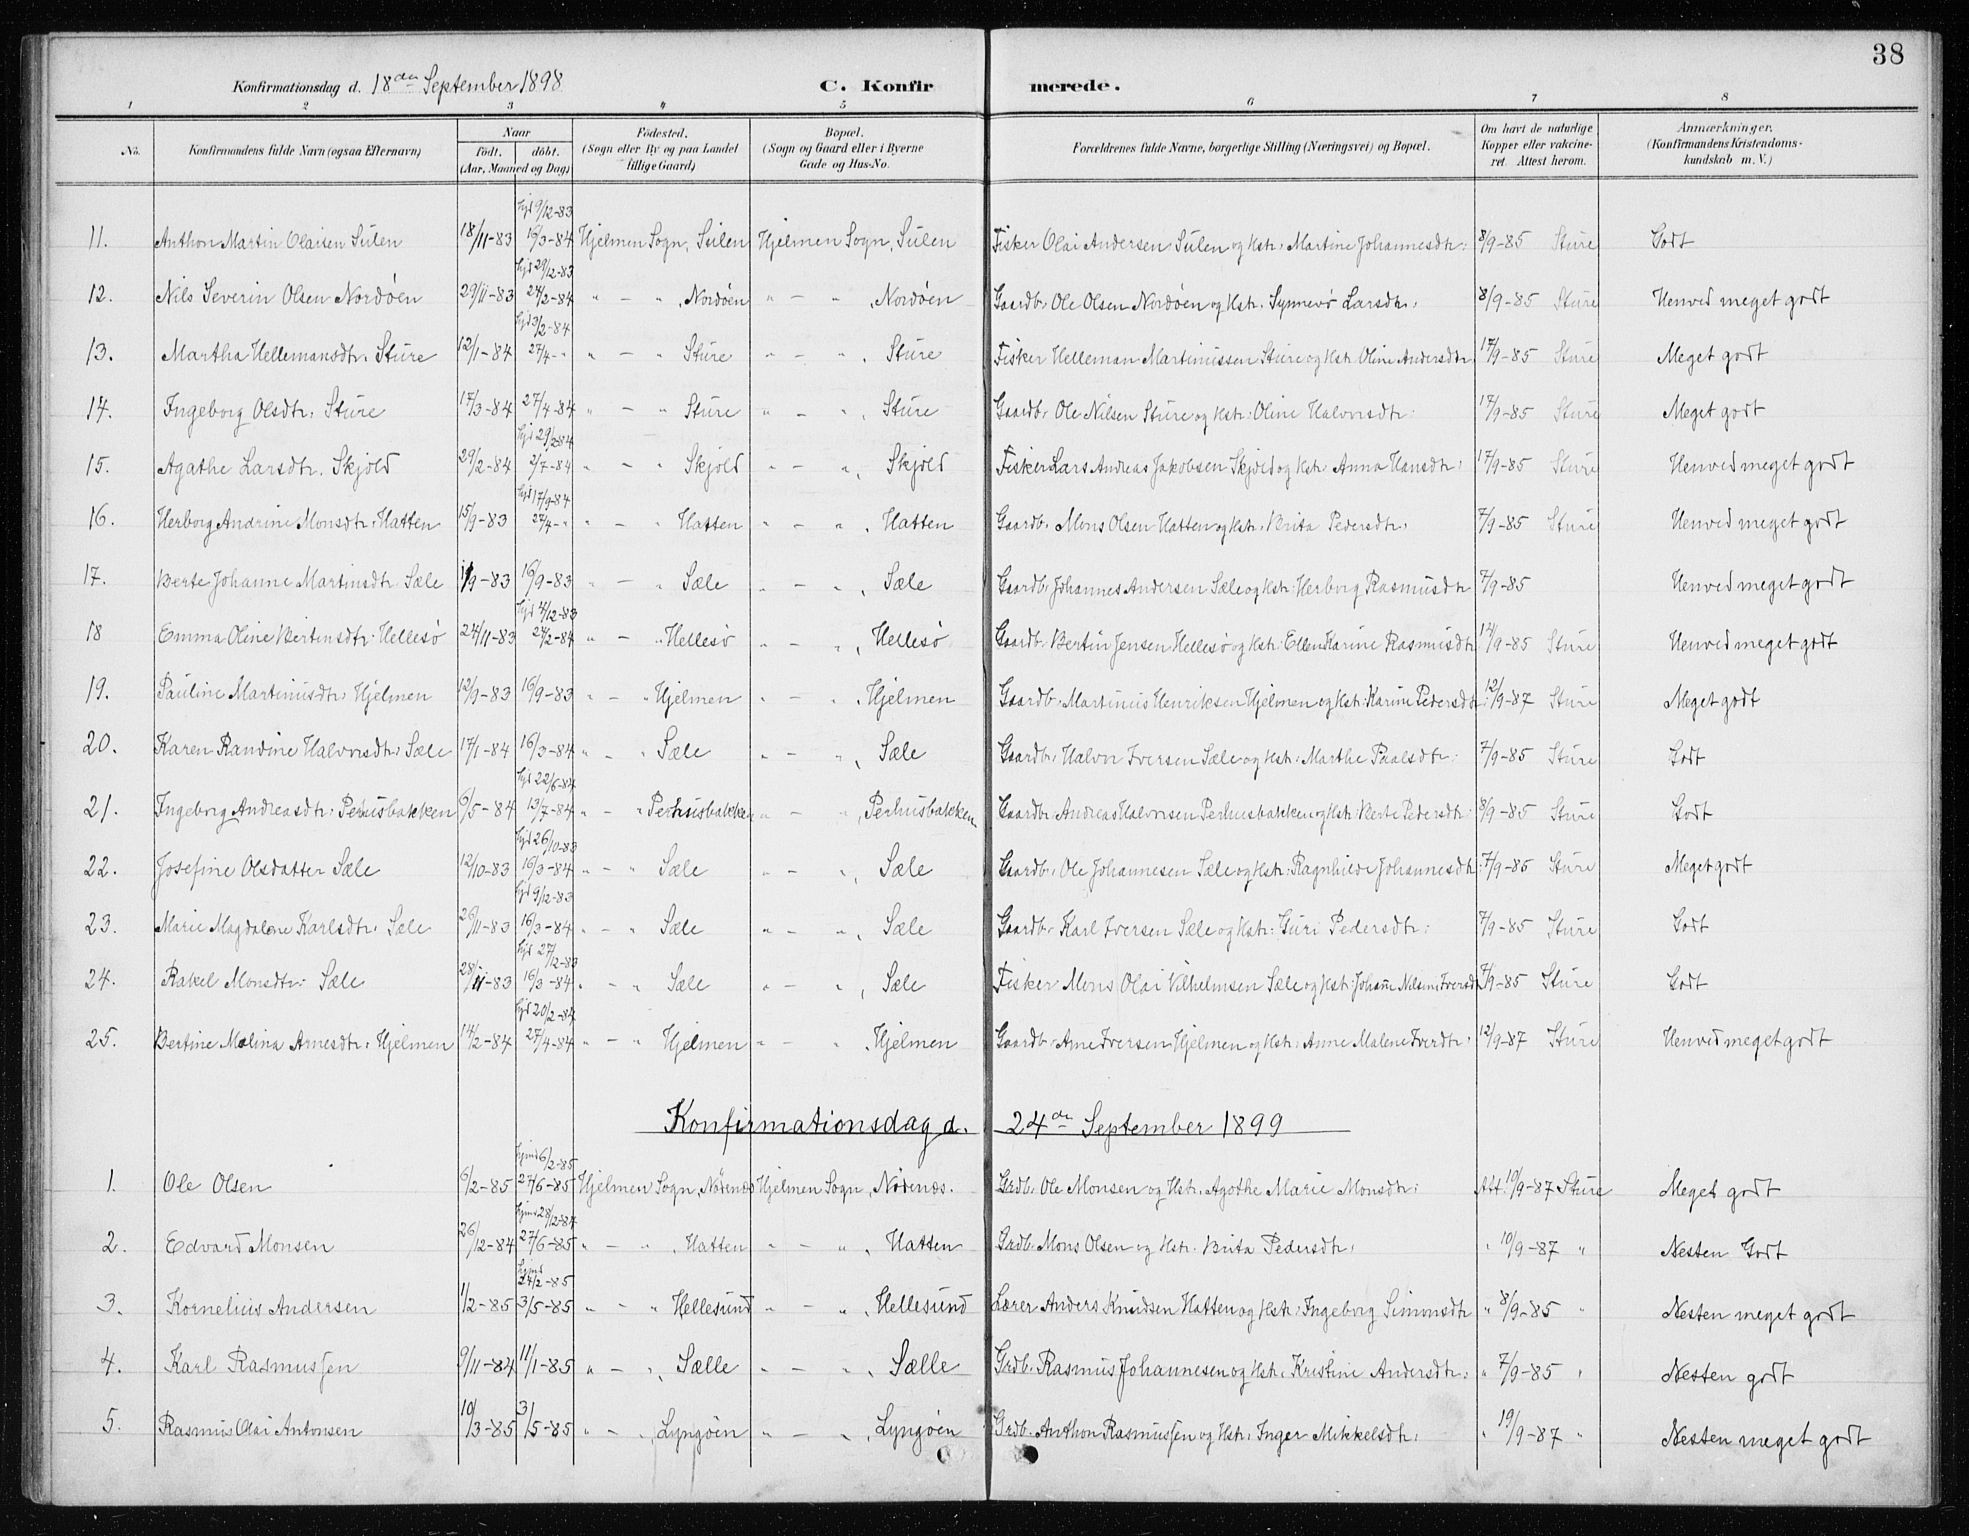 38
Konfirmationsdag d. 18de September 1898 C. Konfirmerede.
1 2 3 4 5 6 7 8
No. Konfirmandens fulde Navn (ogsaa Efternavn) Naar født, døbt. (Aar, Maaned og Dag) Fødested. (Sogn eller By og paa Landet tillige Gaard) Bopæl. (Sogn og Gaard eller i Byerne Gade og Hus-No. Forældrenes fulde Navne, borgerlige Stilling (Næringsvei) og Bopæl. Om havt de naturlige Kopper eller vakcineret. Attest herom. Anmærkninger. (Konfirmandens Kristendomskundskab m. V.)
11. Anthon Martin Olaisen Sulen 18/11-83 hjd 9/12-83 16/3-84 Hjelmen Sogn, Sulen Hjelmen Sogn, Sulen Fisker Olai Andersen Sulen og Hstr: Martine Johannesdtr: 8/9-85 Sture Godt
12. Nils Severin Olsen Nordøen 29/11-83 hjd 29/12-83 24/2-84 " - " , Nordøen " - " , Nordøen Gaardb. Ole Olsen Nordøen og Hstr: Synnevö Larsdtr: 8/9-85 Sture Henved meget godt
13. Martha Hellemansdtr: Sture 12/1-84 hjd 3/2-84 27/4-" " - " Sture " - " , Sture Fisker Helleman Martinussen Sture og Hstr: Oline Andersdtr 17/9-85 Sture Meget godt
14. Ingeborg Olsdtr: Sture 17/3-84 27/4-84 " - " Sture " - " , Sture Gaardb. Ole Nilsen Sture og Hstr: Oline Halvorsdtr: 17/9-85 Sture Meget godt
15. Agathe Larsdtr. Skjold 29/2-84 hjd 29/2-84 2/7-84 " - " Skjold " - " , Skjold Fisker Lars Andreas Jakobsen Skjold og Hstr: Anna Hansdtr: 17/9-85 Sture Henved meget godt
16. Herborg Andrine Monsdtr: Hatten 15/9-83 hjd 17/9-84 27/4-" " - " Hatten " - " , Hatten Gaardb. Mons Olsen Hatten og Hstr: Brita Pedersdtr: 7/9-85 Sture Henved meget godt
17. Berte Johanne Martinsdtr: Sæle 1/9-83 16/9-83 " - " Sæle " - " , Sæle Gaardb. Johannes Andersen Sæle og Hstr: Herborg Rasmusdtr 7/9-85 Henved meget godt
18 Emma Oline Bertensdtr: Hellesö 24/11-83 hjd 4/12-83 24/2-84 " - " Hellesö " - " , Hellesö Gaardb. Bertin Jensen Hellesö og Hstr: Ellen Karine Rasmusdtr 12/9-85 Sture Henved meget godt
19. Pauline Martinusdtr: Hjelmen 12/9-83 16/9-83 " - " Hjelmen " - " , Hjelmen Gaardb. Martinus Henriksen Hjelmen og Hstr: Karine Pedersdtr 12/9-87 Sture Meget godt
20. Karen Randine Halvorsdtr: Sæle 17/1-84 16/3-84 " - " Sæle " - " , Sæle Gaardb. Halvor Iversen Sæle og Hstr: Marthe Paalsdtr: 7/9-85 Sture Godt
21. Ingeborg Andreasdtr: Perhusbakken 6/5-84 hjd 22/6-84 13/7-84 " - " Perhusbakken " - " , Perhusbakken Gaardb. Andreas Halvorsen Perhusbakken og Hstr: Berte Pedersdtr: 8/9-85 Sture Godt
22. Josefine Olsdatter Sæle 12/10-83 hjd 26/10-83 16/3-84 " - " Sæle " - " , Sæle Gaardb. Ole Johannesen Sæle og Hstr: Ragnhilde Johannesdtr: 7/9-85 Sture Meget godt
23. Marie Magdalene Karlsdtr: Sæle 26/11-83 hjd 9/12-83 16/3-84 " - " Sæle " - " , Sæle Gaardb. Karl Iversen Sæle og Hstr: Guri Pedersdtr: 7/9-85 Sture Godt
24. Rakel Monsdtr: Sæle 28/11-83 hjd 27/12-83 16/3-84 " - " Sæle " - " , Sæle Fisker Mons Olai Vilhelmsen Sæle og Hstr: 7/9-85 Sture Godt
25. Bertine Malina Arnesdtr: Hjelmen 14/2-84 hjd 20/2-84 27/4-84 " - " Hjelmen " - " , Hjelmen Gaardb. Arne Iversen Hjelmen og Hstr: Anne Malene Iverdtr: 12/9-87 Sture Henved meget godt
Konfirmationsdag d. 24de September 1899
1. Ole Olsen 6/2-85 hjmd 6/2-85 27/6-85 Hjelmen Sogn, Nödenæs Hjelmen Sogn, Nödenæs. Grdb. Ole Monsen og Hstr. Agathe Marie Monsdtr: Att. 10/9-87 Sture Meget godt
2. Edvard Monsen 26/12-84 hjmd 28/12-84 27/6-85 " - " , Hatten " - " , Hatten Grdb. Mons Olsen og Hstr. Brita Pedersdtr: " 10/9-87 " Nesten Godt
3. Kornelius Andersen 1/2-85 hjmd 24/2-85 3/5-85 " - " Hellesund " - " , Hellesund Lærer Anders Knudsen Hatten og Hstr: Ingeborg Simonsdtr " 8/9-85 " Nesten meget godt
4. Karl Rasmussen 9/11-84 11/1-85 " - " , Sælle " - " , Sælle Grdb. Rasmus Johannesen og Hstr: Kristine Andersdtr: " 7/9-85 " Nesten godt
5. Rasmus Olai Antonsen 10/3-85 3/5-85 " - " , Lyngøen " - " , Lyngøen Grdb. Anthon Rasmussen og Hstr: Inger Mikkelsdtr: " 19/9-87 " Nesten meget godt